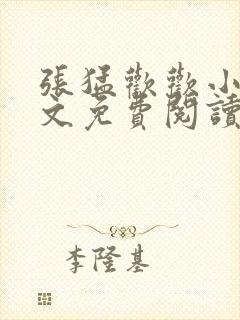 張猛歡歡小
文免費閱讀
李隆基